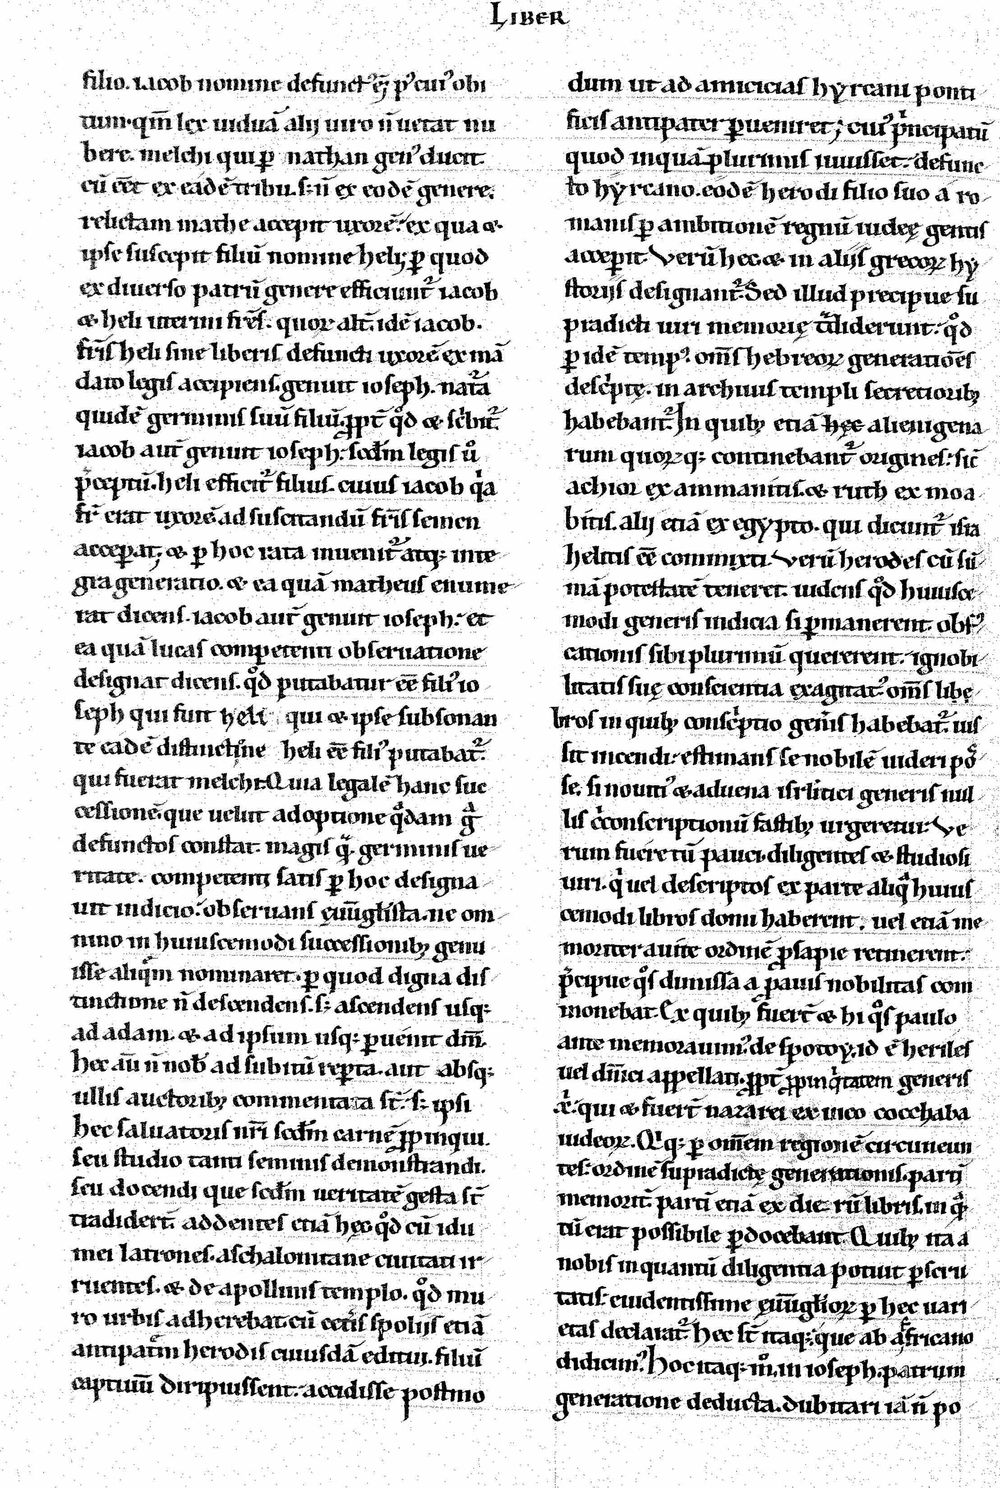 LIBER
filio. iacob nomine defunct᷒ ē; p᷒ cui᷒ obi
tum. qm̄ lex uiduā alij uiro n̄ uetat nu
bere. melchi qui ꝑ nathan gen᷒ ducit.
cū eēt ex eadē tribu. s; n̄ ex eodē genere.
relictam mathe accepit uxorē. ex qua &
ipse suscepit filiū nomine heli; ꝑ quod
ex diuerso patrū genere efficiunt᷑ iacob
& heli uterini fr̄s. quoꝝ alt̄. idē iacob.
fr̄is heli sine liberis defuncti uxorē ex mā
dato legis accipiens. genuit ioseph. nat᷑ā
quidē germinis suū filiū. ꝓpt̄ qͦd & scͥbit᷑.
iacob aut̄ genuit ioseph. scdm̄ legis ū
p̄ceptū. heli efficit᷑ filius. cuius iacob qͥa
fr̄ erat uxorē ad suscitandū fr̄is semen
acceꝑat; & ꝑ hoc rata inuenit᷑ atq; inte
gra generatio. & ea quā matheus enume
rat dicens. iacob aut̄ genuit ioseph. et
ea quā lucas competenti obseruatione
designat dicens. qͦd putabatur eē fili᷒ io
seph qui fuit heli qui & ipse subsonan
te eadē distinctiōne heli eē fili᷒ putabat᷑.
qui fuerat melchi. Quia legalē hanc suc
cessionē. que uelut adoptione qͣdam gͣ
defunctos constat. magis qͣ germinis ue
ritate. competenti satis ꝑ hoc designa
uit indicio. obseruans euuḡlista. ne om
nino in huiuscemodi successionib; genu
isse aliqͥm nominaret. ꝑ quod digna dis
tinctione n̄ descendens. s; ascendens usq;
ad adam. & ad ipsum usq; ꝑuenit dm̄.
hec aū n̄ nob̄ ad subitū reꝑta. aut absq;
ullis auctorib; commentata st̄. s; ipsi
hec saluatoris nr̄i scdm̄ carnē ꝓpinqui.
seu studio tanti seminis demonstrandi.
seu docendi que scdm̄ ueritatē gesta st̄
tradidert̄. addentes etiā hęc qͦd cū idu
mei latrones. aschalonitane ciuitati ir
ruentes. & de apollinis templo. qͦd mu
ro urbis adherebat. cū cetͥs spolijs etiā
antipatͥm herodis cuiusdā editui. filiū
captiuū diripuissent. accidisse postmo
dum ut ad amicicias hyrcani ponti
ficis antipater ꝑueniret; cui᷒ pͥncipatū
quod inquā plurimis iuuisset. defunc
to hyrcano. eodē herodi filio suo a ro
manis ꝑ ambitionē regnū iudeę gentis
acceperit. Verū hec & in alijs grecoꝝ hy
storijs designant᷑. Sed illud precipue su
pradicti uiri memorię tͣdiderunt. qͦd
ꝑ idē temp᷒. om̄s hebreoꝝ generatiōēs
descͥptę. in archiuis templi secretiorib;
habebant᷑. In quib; etiā hęc alienigena
rum quoꝝq; continebant᷑ origines. sic̄
achior ex ammanitis. & ruth ex moa
bitis. alij etiā ex egypto. qui dicunt᷑ isra
helitis eē commixti. Verū herodes cū sū
mā potestatē teneret. uidens qͦd huiusce
modi generis indicia si ꝑmanerent. obf᷒
cationis sibi plurimū quererent. ignobi
litatis suę conscientia exagitat᷒. om̄s libe
bros in quib; conscͥptio gen̄is habebat᷑. ius
sit incendi. estimans se nobilē uideri pos̄
se. si nouit᷒ & aduena isrl̄itici generis nul
lis cͦconscriptionū fastib; urgeretur. Ve
rum fuere tū pauci diligentes & studiosi
uiri. qͥ uel descriptos ex parte aliqͣ huius
cemodi libros domi haberent. uel etiā me
moriter auite ordinē ꝓsapie retinerent.
p̄cipue qͦs dimissa a ꝓauis nobilitas com
monebat. Ex quib; fuert̄ & hi qͦs paulo
ante memorauim᷒. despotoy. id ē heriles
uel dn̄ici appellati. ꝓpt̄ ꝓpinqͥtatem generis
xp̄i. qui & fuert̄ nazarei ex uico cocchaba
iudeoꝝ. Qͥq; ꝑ om̄em regionē circuneun
tes. ordinē supradictę generationis. parti
memorit̄. parti etiā ex dierū libris. in qͣ
tū erat possibile ꝑdocebant. Quib; ita a
nobis inquantū diligentia potuit ꝑscru
tatis. euidentissime euuḡlioꝝ ꝑ hec uari
etas declarat᷑. hec st̄ itaq; que ab affricano
didicim᷒. Hoc itaq; mͦ. in ioseph. patrum
generatione deducta. dubitari iā n̄ po